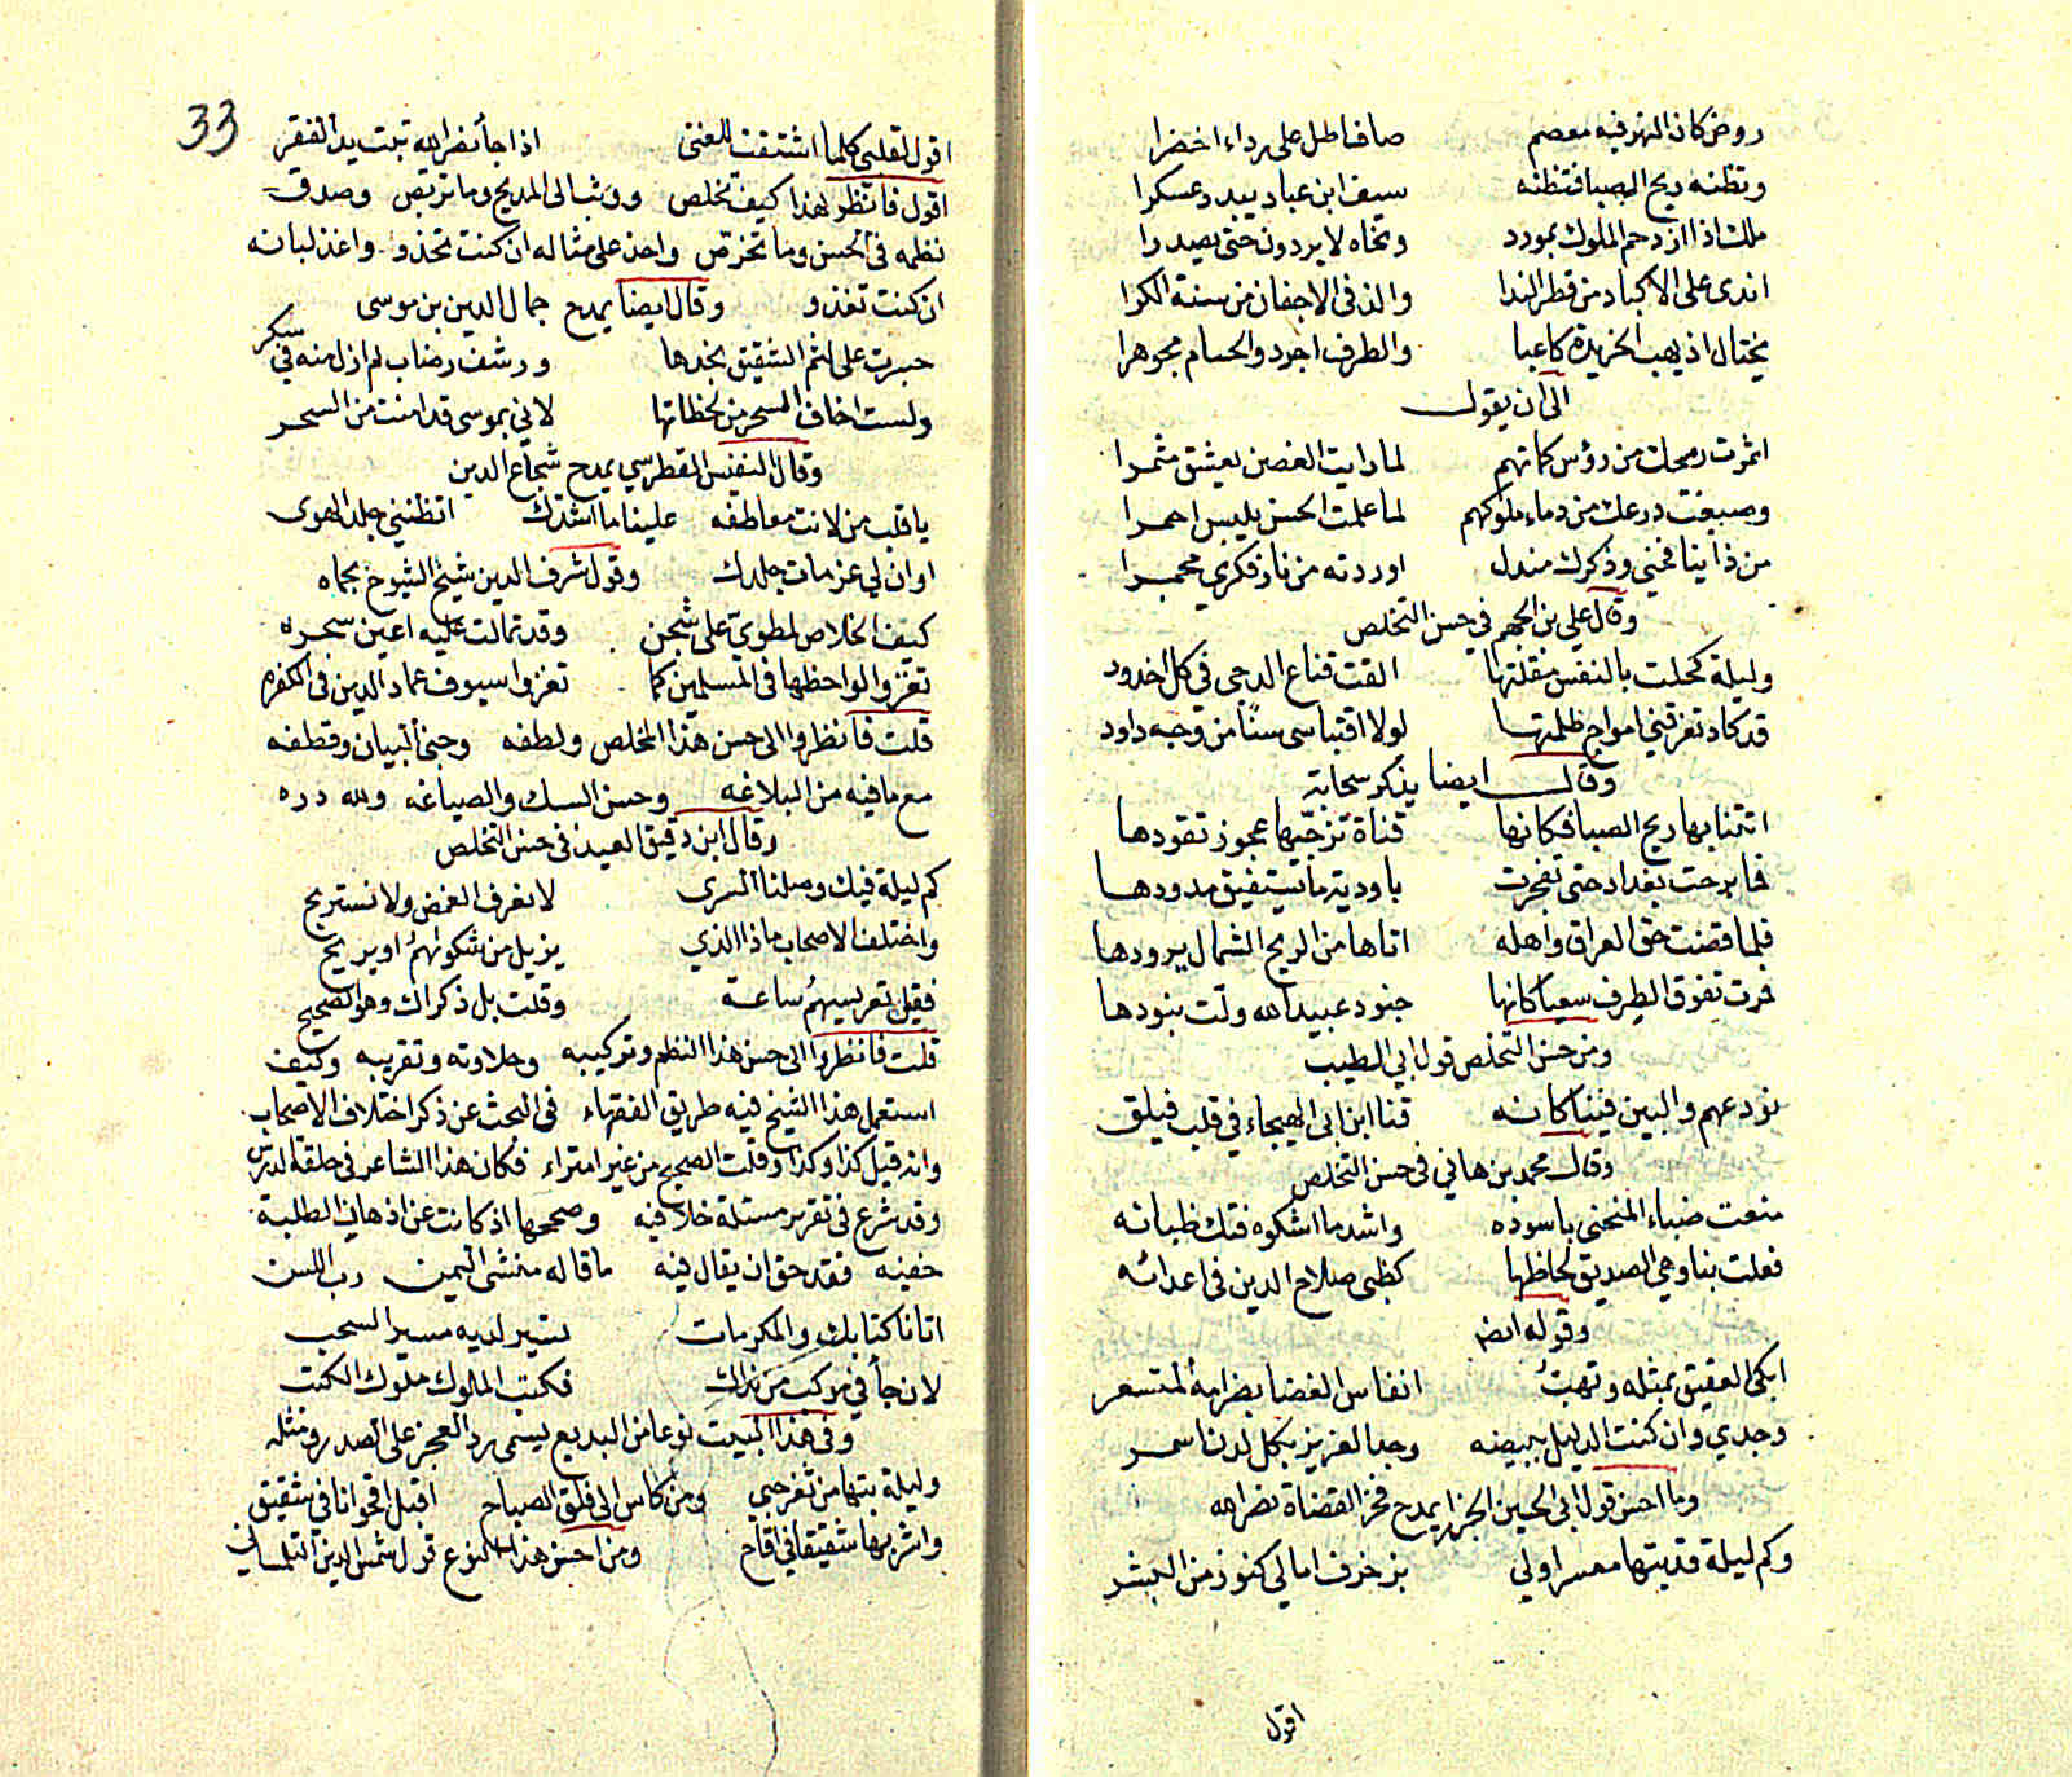 روض كان النهر فيه معصم صاف اطل على رداء اخضرا
وتظنه ريح الصبا فتظنه سيف ابن عباد يبدد عسكرا
ملك اذا ازدحم الملوك بمورد ونحاه لا يردون حتى يصدرا
اندى على الاكباد من قطر الندا والذ فى الاجفان من سنة الكرا
يختال اذ يهب الخريدة كاعبا والطرف اجرد والحسام مجوهرا
الى ان يقول
اثمرت رمحك من رؤس كماتهم لما رايت الغصن يعشق مثمرا
وصبغت درعك من دماء ملوكهم لما علمت الحسن يلبس احمرا
من ذا ينافخني وذكرك مندل اوردته من نار فكري مجمرا
وقال علي بن الجهم في حسن التخلص
وليلة كحلت بالنقس مقلتها القت قناع الدجى فى كل اخدود
قد كاد تغرقني امواج ظلمتها لولا اقتباسى سنًا من وجه داود
وقال ايضا يذكر سحابة
اتتنا بها ريح الصبا فكانها فتاة تزجّيها عجوز تقودها
فما برحت بغداد حتى تفجرت باودية ما يستفيق مدودها
فلما قضت حق العراق واهله اتاها من الريح الشمال يرودها
فمرت تفوق الطرف سعيا كانها جنود عبيد الله ولت بنودها
ومن حسن التخلص قول ابي الطيب
نودعهم والبين فينا كانه قنا ابن ابى الهيجاء في قلب فيلق
وقال محمد بن هاني فى حسن التخلص
منعت ضباء المنحنى باسوده واشد ما اشكوه فتك ظبائه
فعلت بنا وهي الصديق لحاظها كظبى صلاح الدين فى اعدائه
وقوله ايضا
ابكى العقيق بمثله وتهبُ انفاس الغضا بضرامه المتسعر
وجدي وان كنت الذليل ببيضه وجد العزيز بكل لدن اسمر
وما احسن قول ابى الحسين الجزار يمدح فخر القضاة نصر الله
وكم ليلة قد بتها معسرا ولى بزخرف امالي كنوز من اليسر
اقول
33
اقول لقلبى كلما اشتقت للغنى اذا جأ نصر الله تبت يد الفقر
اقول فانظر لهذا كيف تخلص ووثب الى المديح وما تربص وصدق
نظمه فى الحسن وما تخرّص واحذ على مثاله ان كنت تحذو واغذ لبانه
ان كنت تغذو وقال ايضا يمدح جمال الدين بن موسى
جسرت على لثم الشقيق بخدها ورشف رضاب لم ازل منه في سكر
ولست اخاف السحر من لحظاتها لاني بموسى قد امنت من السحر
وقال النفيس القطرسي يمدح شجاع الدين
يا قلب من لانت معاطفه علينا ما اشدك اتظنني جلد الهوى
او ان لي عزمات جلدك وقول شرف الدين شيخ الشيوخ بحماه
كيف الخلاص لمطويّ على شجن وقد تمالت عليه اعين سحره
تغزوا لواحظها فى المسلمين كما تغزوا سيوف عماد الدين فى الكفره
قلت فانظروا الى حسن هذا المخلص ولطفه وجنى البيان وقطفه
مع ما فيه من البلاغه وحسن السبك والصياغه ولله دره
وقال ابن دقيق العيد فى حسن التخلص
كم ليلة فيك وصلنا السرى لا نعرف الغمض ولا نستريح
واختلف الاصحاب ماذا الذي يزيل من شكواهمُ او يريح
فقيل تعريسهمُ ساعة وقلت بل ذكراك وهو الصحيح
قلت فانظروا الى حسن هذا النظم وتركيبه وحلاوته وتقريبه وكيف
استعمل هذا الشيخ فيه طريق الفقهاء فى البحث عن ذكر اختلاف الاصحاب
وانه قيل كذا وكذا وقلت الصحيح من غير امتراء فكان هذا الشاعر فى حلقة الدرس
وقد شرع فى تقرير مسئلة خلافيه وصححها اذ كانت عن اذهان الطلبة
خفيه فقد حق ان يقال فيه ما قاله منشى اليمن رب اللسن
اتانا كتابك والمكرمات تسير لديه مسير السحب
لان جأ في موكب من نداك فكتب الملوك ملوك الكتب
وفى هذا البيت نوعا من البديع يسمى رد العجز على الصدر ومثله
وليلة بتها من ثغر حبي ومن كاس الى فلق الصباح اقبل اقحوانا في شقيق
واشربها شقيقا في اقاح ومن احسن هذا النوع قول شمس الدين التلمساني